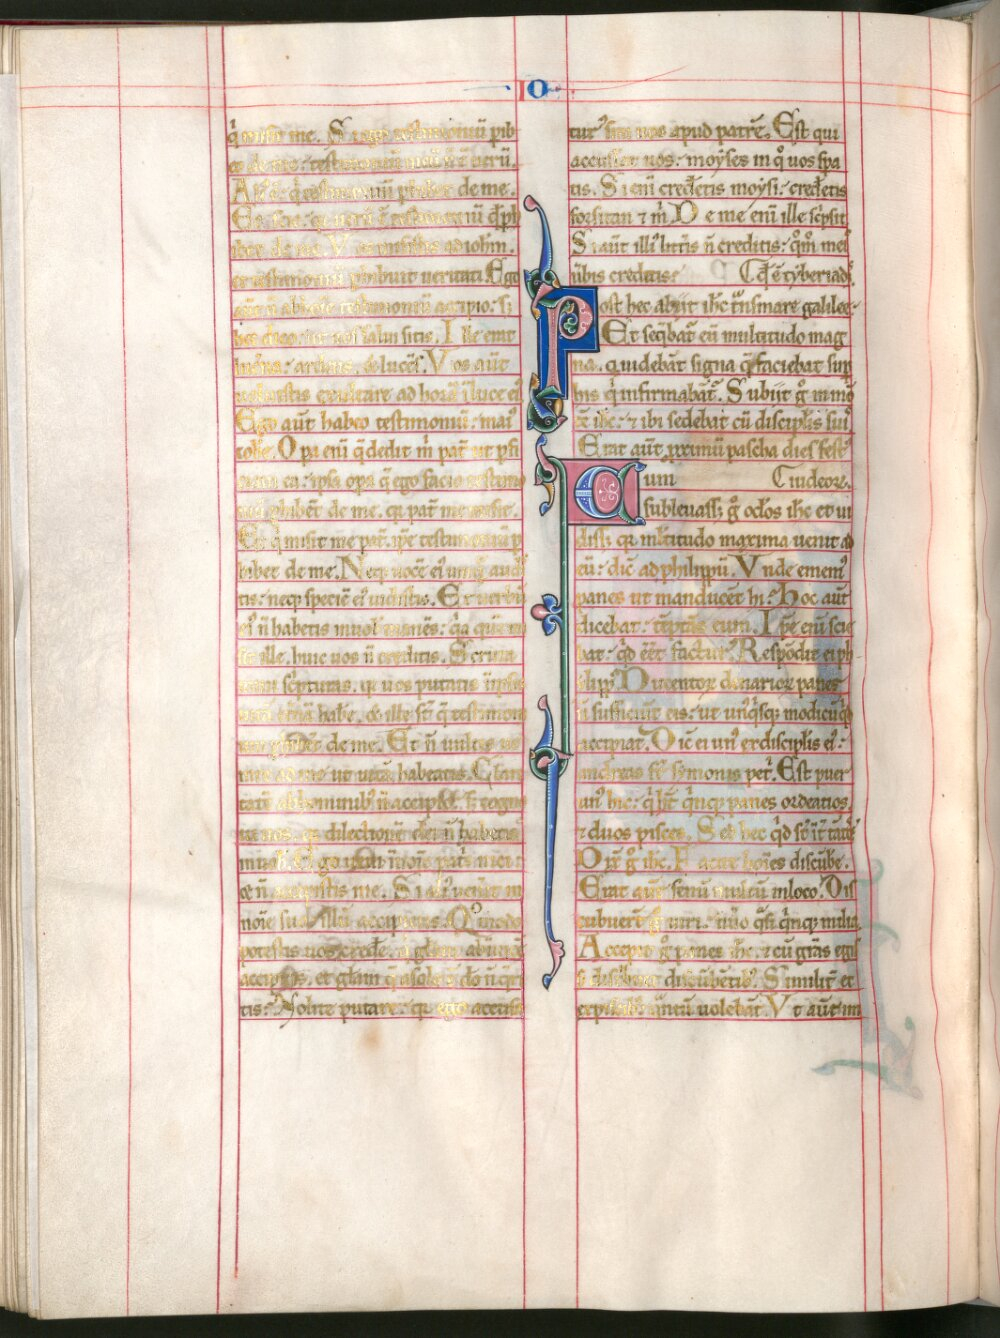 IO
q misit me. Si ego testimoniū phib
eo de me: testimoniū meū ñ ē uerū.
Ali ē q testimoniū phibet de me.
Et scio: qr uerū ē testimoniū qd phi
bet de me. Vos misistis ad iohm.
et testimoniū phibuit ueritati. Ego
aut ñ ab hoīe testimoniū accipio: s;
hec dico: ut uos salui sitis. Ille erat
lucerna: ardens & lucēs. Vos aūt
uoluistis exultare ad horā ī luce ei
Ego aūt habeo testimoniū: mai
iohe. Opa eni q dedit m pat ut pfi
ciam ea: ipsa opa q ego facio testimo
niū phibēt de me: qr pat me misit.
Et q misit me pat: ipe testimoniū p
hibet de me. Neq; uocē ei umq; audi
tis: neq; speciē ei uidistis. Et uerbū
ei ñ habetis in uob manēs: qa quē mi
sit ille. huic uos ñ creditis. Scruta
mini scpturas. qr uos putatis ī ipsis
uitā etnā habē. & ille st q testimoniū
phibēt de me. Et ñ uultis ue
nire ad me ut uitā habeatis. Clari
tatē ab hominib; ñ accipio. s; cognoui
uos. qr dilectionē dei ñ habetis
in uob. Ego ueni in noīe patris mei:
& ñ accepistis me. Si ali uenit in
noīe suo illū accipietis. Quomodo
potestis uos crede. q gliam ab inuicē
accipitis. et gliam q a solo ē do ñ qri
tis: Nolite putare: qr ego accusa
tur sim uos apud patrē. Est qui
accusat uos: moyses in q uos spa
tis. Si eni credetis moysi: credetis
forsitan & m. De me eni ille scpsit
Si aūt illi littis ñ creditis: qm meis
ūbis credetis? q ē tyberiadis
Post hec abiit ihc trnsmare galilee:
Et seqbat eū multitudo mag
na. qui debāt signa q faciebat sup
his q infirmabāt. Subiit g in mō
tē ihc: & ibi sedebat cū discipl̄is suis
Erat aūt pximū pascha dies fest
Cum iudeorz.
subleuass; g oclos ihc et ui
diss; qr mltitudo maxima uenit ad
eū: dic ad philippū. Vnde emem
panes ut manducēt hi. Hoc aūt
dicebat: tēptās eum. Ipe eni scie
bat: qd eēt factur. Respōdit ei ph
ilipp. Ducentorz denariorz panes
ñ sufficiūt eis: ut unqsq; modicū qd
accipiat. Dic ei un ex disciplis ei:
andreas fr symonis pet. Est puer
un hic: q ht qnq; panes ordeatios.
& duos pisces. Sed hec qd st īt tātos
Dix g ihc. Facite hoīes discūbe.
Erat aūt fenū multū in loco. Dis
cubuert g uiri. nūo qsi qnq; milia.
Accepit g panes ihc: & cū grās egis
s; distribuit discūbetib;. Similit et
ex piscib; qntū uolebāt. Vt aūt im